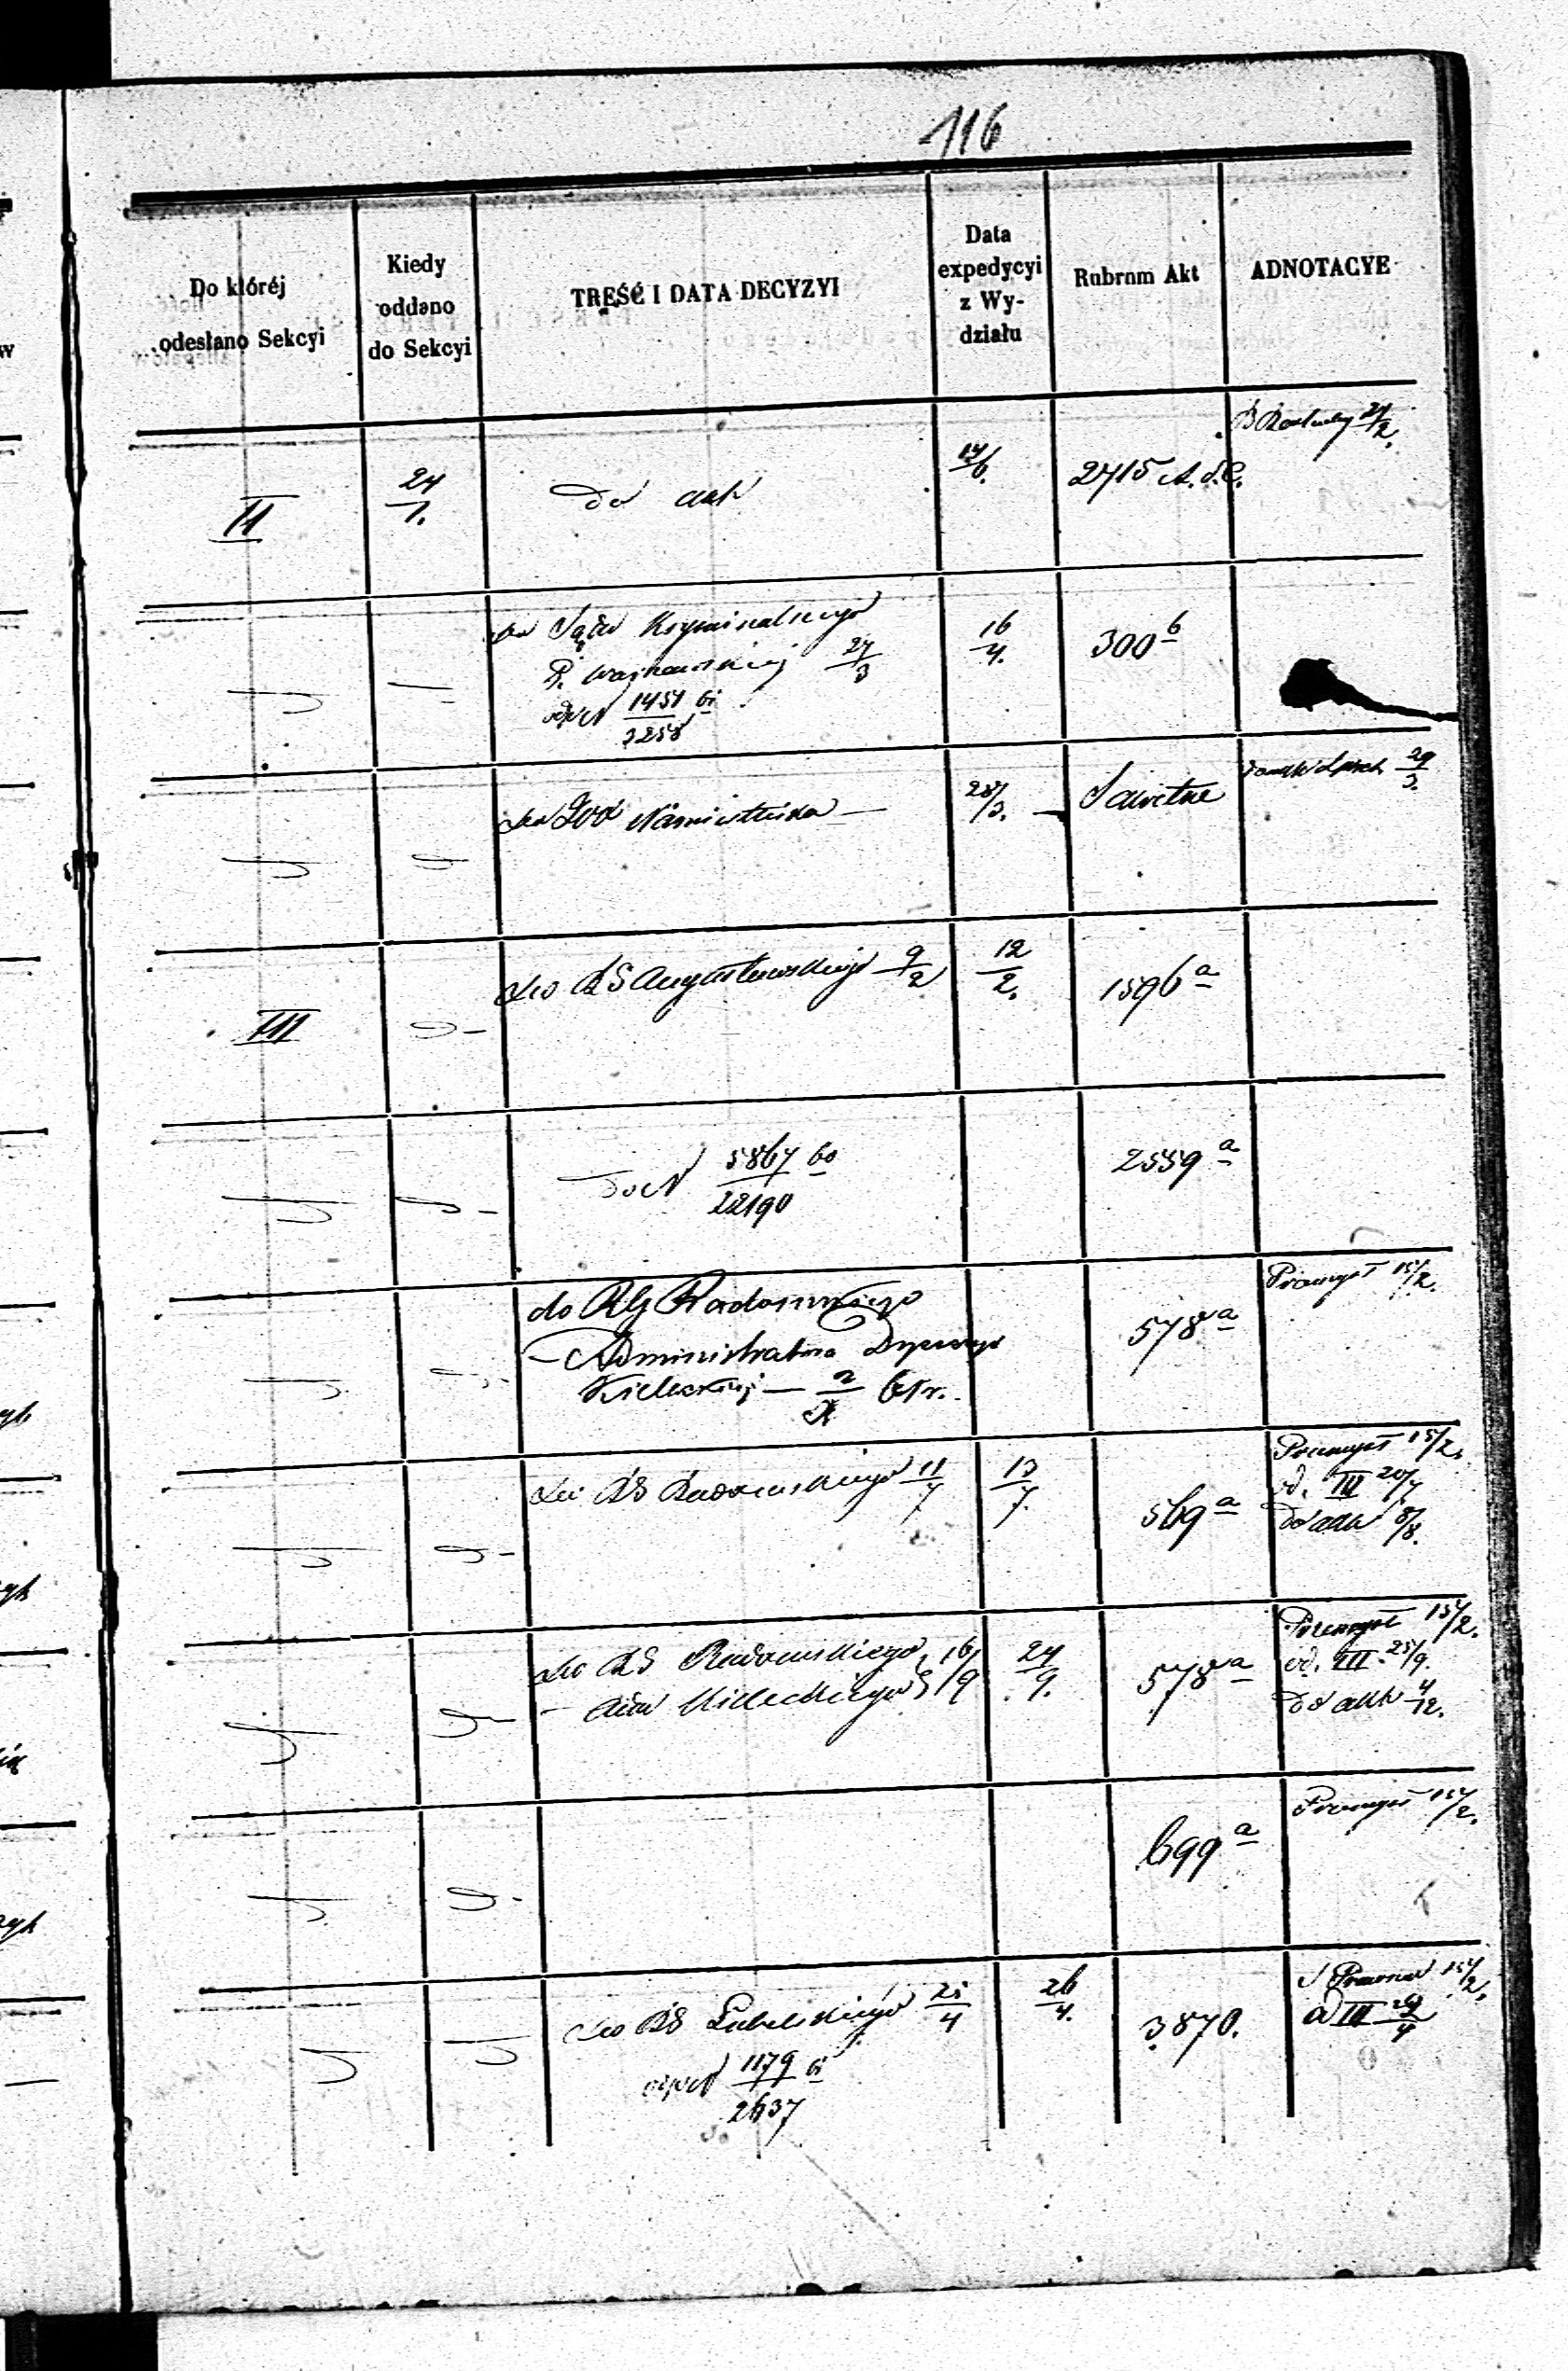 116
Do któréj
odesłano Sekcyi
Kiedy
oddano
do Sekcyi
TREŚĆ I DATA DECYZYI
Data
expedycyi
z Wy-
działu
Rubrum Akt
ADNOTACYE
II
24/1.
do akt
14/6.
2715
24/2.
do Sądu Kryminalnego
27/3
1451/3258
16/4.
300 b
do Namiestnika —
28/3. —
Sekretne
29/3.
III
do RG Augustowskiego 9/2
12/2.
1596 a
do N 5867/22190
2559 a
do RG Radomskiego
Administratora Dyecezyi
Kieleckiej — 2/X 61 r.
578 a
Przemysł 15/2.
do RG Radomskiego 11/7
13/7.
569 a
Przemysł 15/2.
od. III 20/7
do akt 8/8.
do RG Radomskiego 16/9
— Kieleckiego
24/9.
578 a
Przemysł 15/2.
od. III. 25/9.
do akt 4/12.
699 a
Przemysł 15/2.
do RG Lubelskiego 25/4
1179/2637
26/4.
3870.
15/2.
III